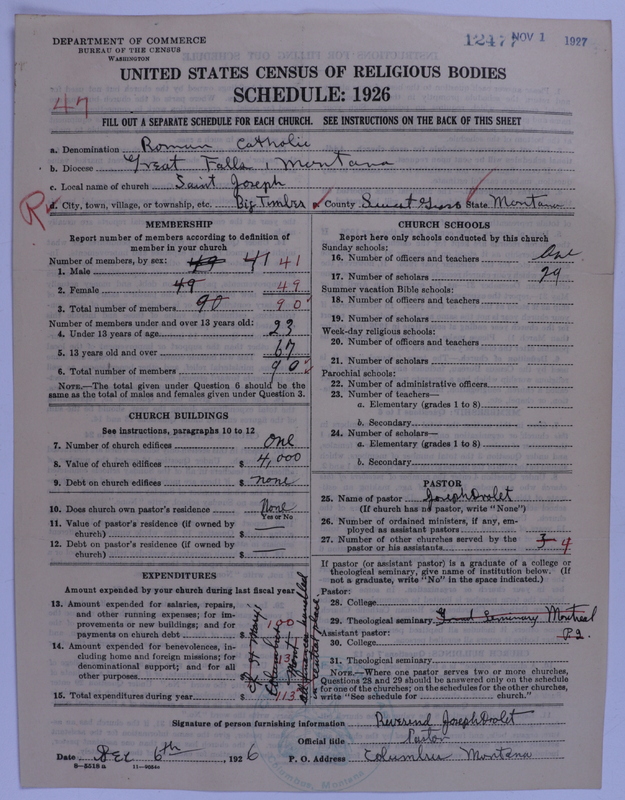 DEPARTMENT OF COMMERCE
BUREAU OF THE CENSUS
WASHINGTON
12477 NOV 1 1927
UNITED STATES CENSUS OF RELIGIOUS BODIES
SCHEDULE: 1926
47
FILL OUT A SEPARATE SCHEDULE FOR EACH CHURCH. SEE INSTRUCTIONS ON THE BACK OF THIS SHEET
a. Denomination Roman Catholic
b. Diocese Great Falls, Montana
c. Local name of church Saint Joseph
R d. City, town, village, or township, etc. Big Timber County Sweet Grass State Montana
MEMBERSHIP
Report number of members according to definition of
member in your church
Number of members, by sex:
1. Male 49 41 41
2. Female 49 49
3. Total number of members 90 90
Number of members under and over 13 years old:
4. Under 13 years of age 23
5. 13 years old and over 67
6. Total number of members 90
NOTE.—The total given under Question 6 should be the
same as the total of males and females given under Question 3.
CHURCH BUILDINGS
See instructions, paragraphs 10 to 12
7. Number of church edifices One
8. Value of church edifices $ 4,000
9. Debt on church edifices $ none
10. Does church own pastor's residence None
Yes or No
11. Value of pastor's residence (if owned by
church) $ —
12. Debt on pastor's residence (if owned by
church) $ —
EXPENDITURES
Amount expended by your church during last fiscal year
13. Amount expended for salaries, repairs,
and other running expenses; for im-
provements or new buildings; and for
payments on church debt $
14. Amount expended for benevolences, in-
cluding home and foreign missions; for
denominational support; and for all
other purposes $
15. Total expenditures during year $ 113
Columbus
Mont
CHURCH SCHOOLS
Report here only schools conducted by this church
Sunday schools:
16. Number of officers and teachers One
17. Number of scholars 29
Summer vacation Bible schools:
18. Number of officers and teachers
19. Number of scholars
Week-day religious schools:
20. Number of officers and teachers
21. Number of scholars
Parochial schools:
22. Number of administrative officers
23. Number of teachers—
a. Elementary (grades 1 to 8)
b. Secondary
24. Number of scholars—
a. Elementary (grades 1 to 8)
b. Secondary
PASTOR
25. Name of pastor Joseph Drolet
(If church has no pastor, write "None")
26. Number of ordained ministers, if any, em-
ployed as assistant pastors
27. Number of other churches served by the
pastor or his assistants 3 4
If pastor (or assistant pastor) is a graduate of a college or
theological seminary, give name of institution below. (If
not a graduate, write "No" in the space indicated.)
Pastor:
28. College
29. Theological seminary Grand Seminary Montreal
Assistant pastor:
30. College
31. Theological seminary
NOTE.—Where one pastor serves two or more churches,
Questions 28 and 29 should be answered only on the schedule
for one of the churches; on the schedules for the other churches,
write "See schedule for church."
Signature of person furnishing information Reverend Joseph Drolet
Official title Pastor
Date Dec 6th, 1926 P. O. Address Columbus Montana
8—5518 a